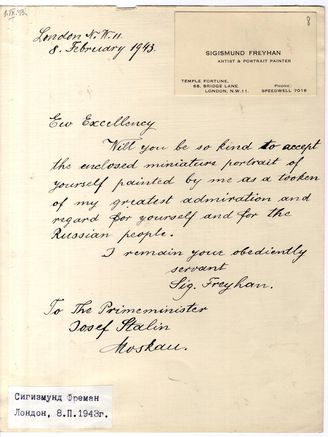 London N.W.11.
8. February 1943.
8
SIGISMUND FREYHAN
ARTIST & PORTRAIT PAINTER
TEMPLE FORTUNE,
68, BRIDGE LANE,
LONDON, N.W.11.
Phone:
SPEEDWELL 7018
Euo Excellency
Will you be so kind to accept
the enclosed miniature portrait of
yourself painted by me as a tooken
of my greatest admiration and
regard for yourself and for the
Russian people.
I remain your obediently
servant
Sig. Freyhan.
To The Primeminister
Josef Stalin
Moskau.
Сигизмунд Фреман
Лондон, 8.П.1943г.